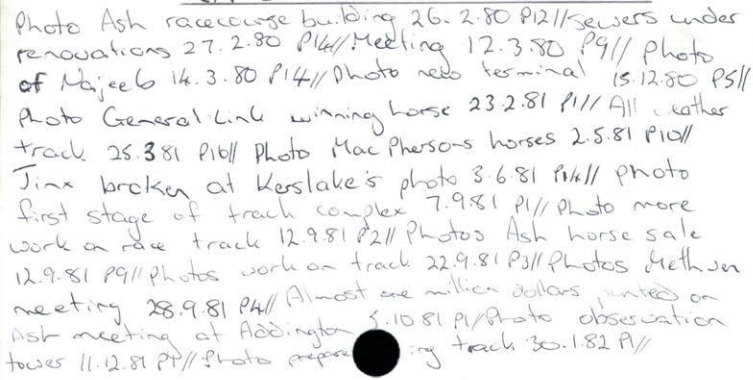 Photo Ash racecourse building 26.2.80 P12//Sewers under
renovations 27.2.80 P14//Meeting 12.3.80 P9// Photo
of Najeeb 14.3.80 P14// Photo new terminal 15.12.80 P5//
Photo General Link winning horse 23.2.81 P1// All weather
track 25.3.81 P10// Photo MacPhersons horses 2.5.81 P10//
Jinx broken at Kerslake's photo 3.6.81 P14// photo
first stage of track complex 7.9.81 P1// Photo more
work on race track 12.9.81 P2// Photos Ash horse sale
12.9.81 P9// Photos work on track 22.9.81 P3// Photos Methven
meeting 28.9.81 P4// Almost one million dollars on
Ash meeting at Addington .10.81 P1/Photo observation
tower 11.12.81 // Photo track 30.1.82 P1//